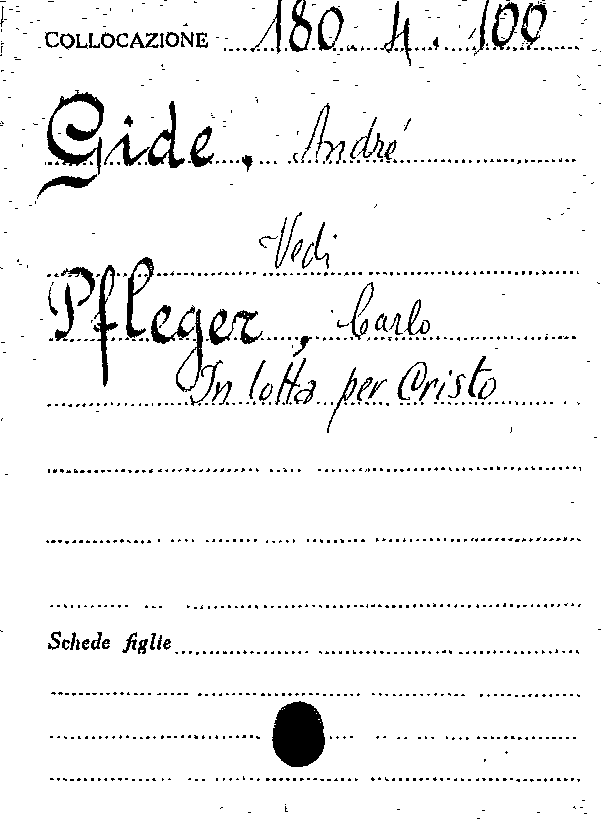 COLLOCAZIONE 180. 4. 100
Gide. André
Vedi
Pfleger, Carlo
In lotta per Cristo
Schede figlie